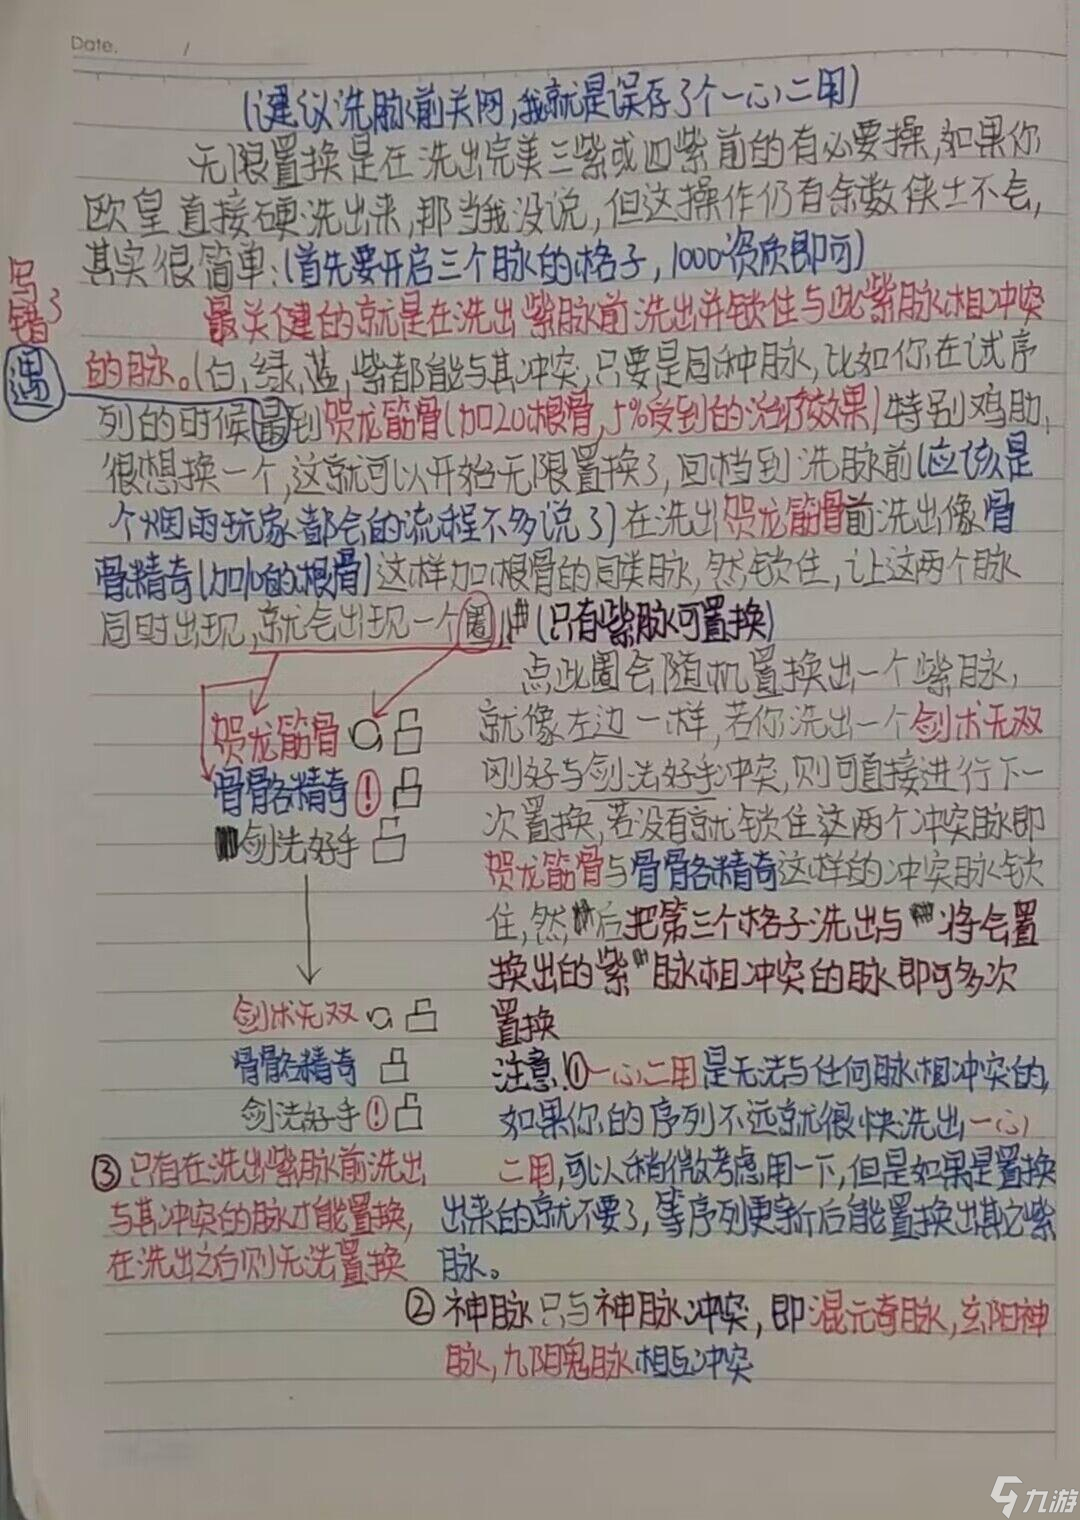 Date.
/
(建议洗脉前关网,我就是误存了个一心二用)
无限置换是在洗出完美三紫或四紫前的有必要操,如果你
欧皇直接硬洗出来,那当我没说,但这操作仍有余数侠士不会,
其实很简单:(首先要开启三个脉的格子,1000资质即可)
写错了
遇
最关健的就是在洗出紫脉前洗出并锁住与此紫脉相冲突
的脉。(白,绿,蓝,紫都能与其冲突,只要是同种脉,比如你在试序
列的时候最到贺龙筋骨(加20根骨,5%受到的治疗效果)特别鸡肋,
很想换一个,这就可以开始无限置换了,回档到洗脉前(应该是
个烟雨玩家都会的流程不多说了)在洗出贺龙筋骨前洗出像骨
骨精奇(加10的根骨)这样加根骨的同类脉,然锁住,让这两个脉
同时出现,就会出现一个圈(只有紫脉可置换)
点此圈会随机置换出一个紫脉,
就像左边一样,若你洗出一个剑术无双
刚好与剑法好手冲突,则可直接进行下一
次置换,若没有就锁住这两个冲突脉即
贺龙筋骨与骨骨各精奇这样的冲突脉锁
住,然后把第三个格子洗出与将会置
换出的紫脉相冲突的脉即可多次
置换
贺龙筋骨
骨骨各精奇!
剑法好手
剑术无双
骨骨各精奇
剑法好手!
注意!①一心二用是无法与任何脉相冲突的,
如果你的序列不远就很快洗出一心
二用,可以稍微考虑用一下,但是如果是置换
出来的就不要了,等序列更新后能置换出其它紫
脉。
②神脉只与神脉冲突,即混元奇脉,玄阳神
脉,九阴鬼脉相互冲突
③只有在洗出紫脉前洗出
与其冲突的脉才能置换,
在洗出之后则无法置换
九游